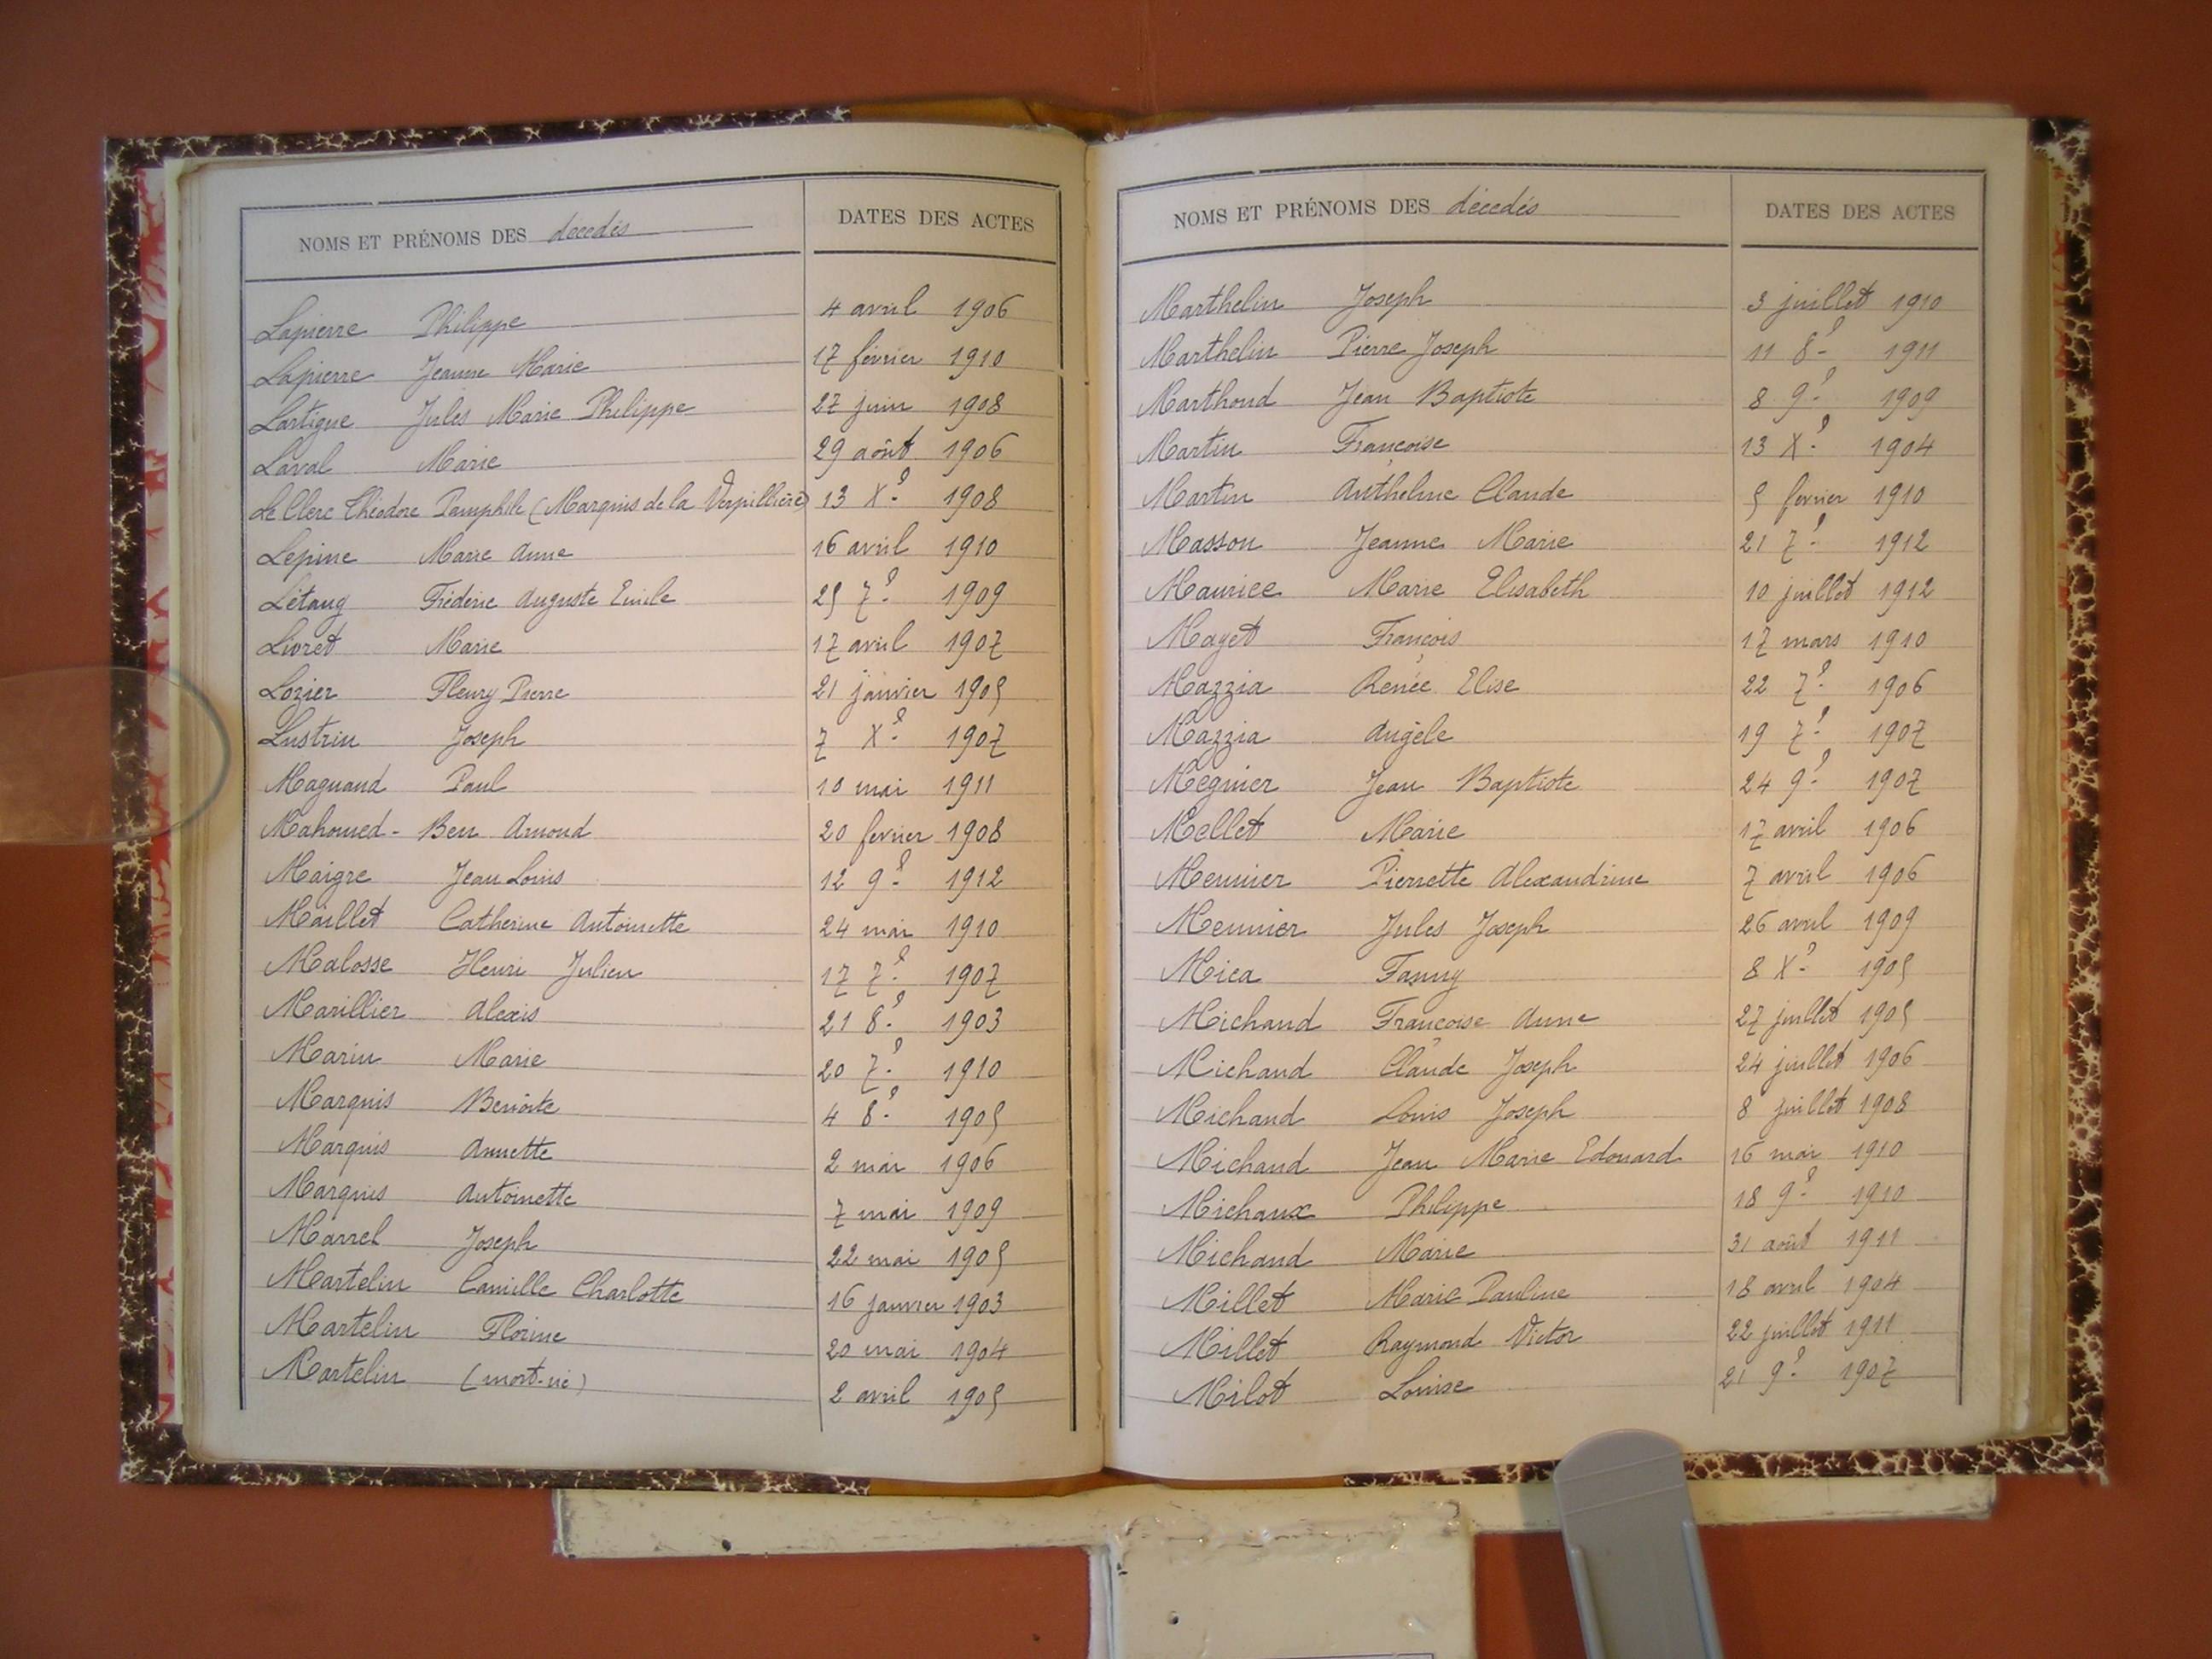 NOMS ET PRÉNOMS DES décédés DATES DES ACTES
Lapierre Philippe 4 avril 1906
Lapierre Jeanne Marie 17 février 1910
Lartigue Jules Marie Philippe 27 juin 1908
Laval Marie 29 août 1906
Le Clerc Théodore Pamphile (Marquis de la Verpillière) 13 Xe 1908
Lépine Marie Anne 16 avril 1910
Létang Frédéric Auguste Emile 25 7e 1909
Livret Marie 17 avril 1907
Lozier Fleury Pierre 21 janvier 1905
Lustrin Joseph 7 Xe 1907
Magnand Paul 10 mai 1911
Mahomed-Ben Amoud 20 fevrier 1908
Maigre Jean Louis 12 9e 1912
Maillet Catherine Antoinette 24 mai 1910
Malosse Henri Julien 17 7e 1907
Marillier Alexis 21 8e 1903
Marin Marie 20 7e 1910
Marquis Benoite 4 8e 1905
Marquis Annette 2 mai 1906
Marquis Antoinette 7 mai 1909
Marrel Joseph 22 mai 1905
Martelin Camille Charlotte 16 janvier 1903
Martelin Florine 20 mai 1904
Martelin (mort-né) 2 avril 1905
NOMS ET PRÉNOMS DES décédés DATES DES ACTES
Marthelin Joseph 3 juillet 1910
Marthelin Pierre Joseph 11 8e 1911
Marthoud Jean Baptiste 8 9e 1909
Martin Françoise 13 Xe 1904
Martin Anthelme Claude 5 fevrier 1910
Masson Jeanne Marie 21 7e 1912
Maurice Marie Elisabeth 10 juillet 1912
Mayet François 17 mars 1910
Mazzia Renée Elise 22 7e 1906
Mazzia Angèle 19 7e 1907
Mégnier Jean Baptiste 24 9e 1907
Mellet Marie 17 avril 1906
Meunier Pierrette Alexandrine 7 avril 1906
Meunier Jules Joseph 26 avril 1909
Mica Fanny 8 Xe 1905
Michaud Françoise Anne 27 juillet 1905
Michaud Claude Joseph 24 juillet 1906
Michaud Louis Joseph 8 juillet 1908
Michaud Jean Marie Edouard 16 mai 1910
Michaux Philippe 18 9e 1910
Michaud Marie 31 août 1911
Millet Marie Pauline 18 avril 1904
Millet Raymond Victor 22 juillet 1911
Milot Louise 21 9e 1907